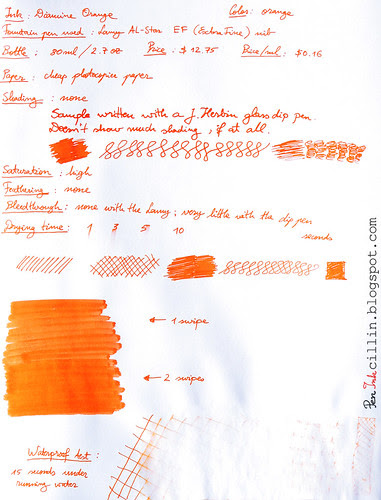 Ink: Diamine Orange Color: orange
Fountain pen used: Lamy AL-Star EF (Extra Fine) nib
Bottle: 80ml / 2.7 oz Price: $12.75 Price/ml: $0.16
Paper: cheap photocopier paper
Shading: none
Sample written with a J. Herbin glass dip pen.
Doesn't show much shading, if at all.
Saturation: high
Feathering: none
Bleedthrough: none with the Lamy; very little with the dip pen
Drying time: 1 3 5 10
seconds
← 1 swipe
← 2 swipes
Waterproof test:
15 seconds under
running water
Pen Ink cillin.blogspot.com